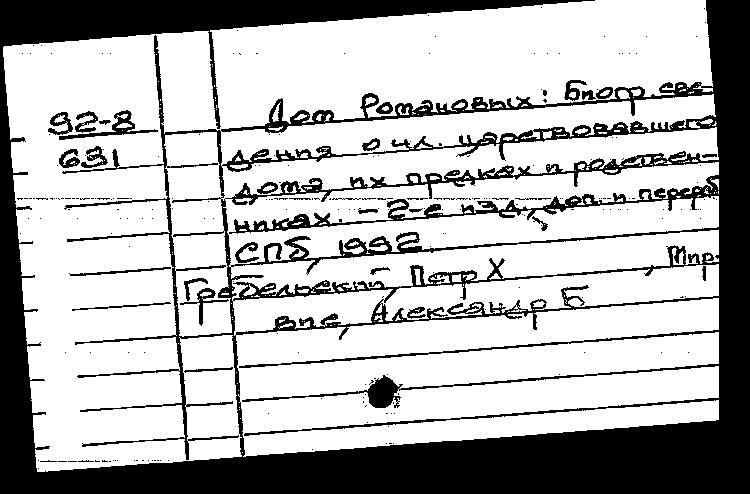 92-8
631
Дом Романовых: Биогр. све-
дения о чл. царствовавшего
дома, их предках и родствен-
никах. - 2-е изд., доп. и перераб
СПб, 1992.
Гребельский, Петр Х , Мир-
вис, Александр Б